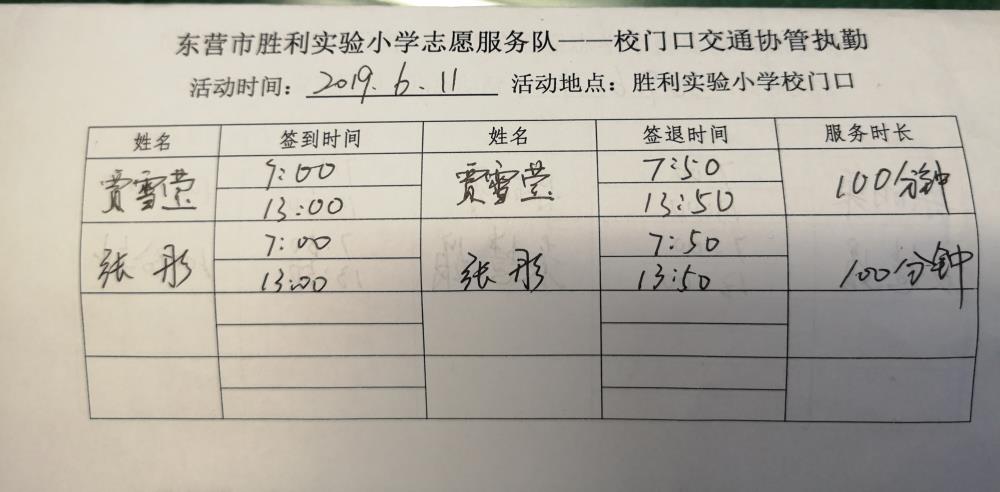 东营市胜利实验小学志愿服务队——校门口交通协管执勤
活动时间：2019.6.11 活动地点：胜利实验小学校门口
姓名 签到时间 姓名 签退时间 服务时长
贾雪莹 7:00 贾雪莹 7:50 100分钟
13:00 13:50
张彤 7:00 张彤 7:50 100分钟
13:00 13:50